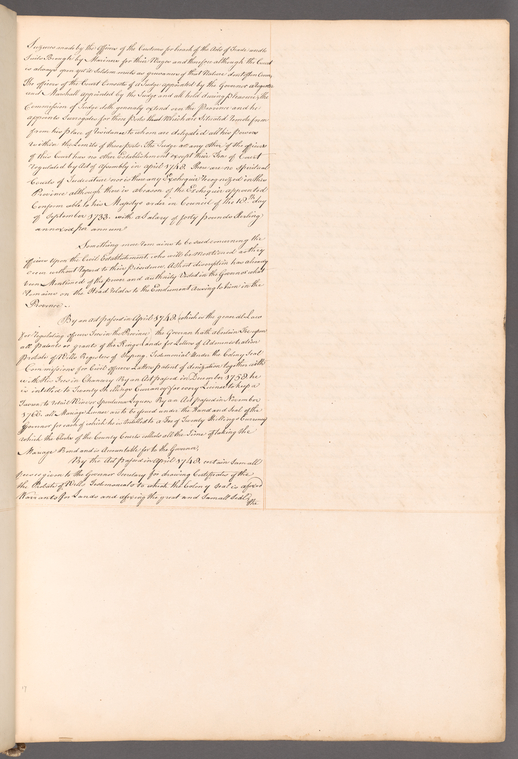 Seizures made by the officers of the Customs for breach of the Acts of Trade and to
Suits Brought by Mariners for their Wages and therefore although the Court
is always open yet it seldom meets as grievances of that Nature don't often Occur
The officers of the Court Consists of a Judge appointed by the Governor a Register
and Marshall appointed by the Judge and all hold during Pleasure, The
Commission of Judge doth generally extend over the Province and he
appoints Surrogates for those ports that Which are Situated remote from
from his place of Residence to whom are delegated all his powers
within the Limits of those ports. The Judge nor any other of the officers
of this Court have no other Establishment except their Fees of Court
regulated by Act of Assembly in april 1748. There are no spiritual
Courts of Judicature nor is there any Exchequer recognized in this
Province although there is a baron of the Exchequer appointed
Conformable to his Majestys order in Council of the 18th day
of September 1733. with a Salary of forty pounds Sterling
annexed per annum
Something more remains to be said concerning the
officers upon the Civil Establishment, who will be mentioned as they
are without regard to their precedence, A short description has already
been Mentioned of the power and authority Vested in the Governor what
remains on the Head relates to the Emoluments accruing to him in the
Province.
By an Act passed in April 1748. which is the general Law
for regulating officers Fees in the Province the Governor is Entitled to certain Fees upon
all Patents or grants of the Kings Lands for Letters of Administration
Probate of Wills Registers of Shiping, Testimonial Under the Colony Seal
Commissions for Civil officers Letters patent of denization together with
all other Fees in Chancery By an Act passed in December 1758. he
is intitled to Twenty Shillings Currency for every License to keep a
Tavern to retail Wine or Spirituous Liquors By an Act passed in November
1766. all Marriage Licenses are to be found under the Hand and Seal of the
Governor for each of which he is intitled to a Fee of Twenty Shillings Currency
which the Clerks of the County Courts collects at the Time of taking the
Marriage Bond and is Accountable for to the Governor.
By the Act passed in April 1748. certain small
Fees are given to the Governors Secretary for drawing Certificates of the
the Probate of Wills Testimonials to which the Colony Seal is affixed
Warrants for Lands and affixing the great and small Seals
the